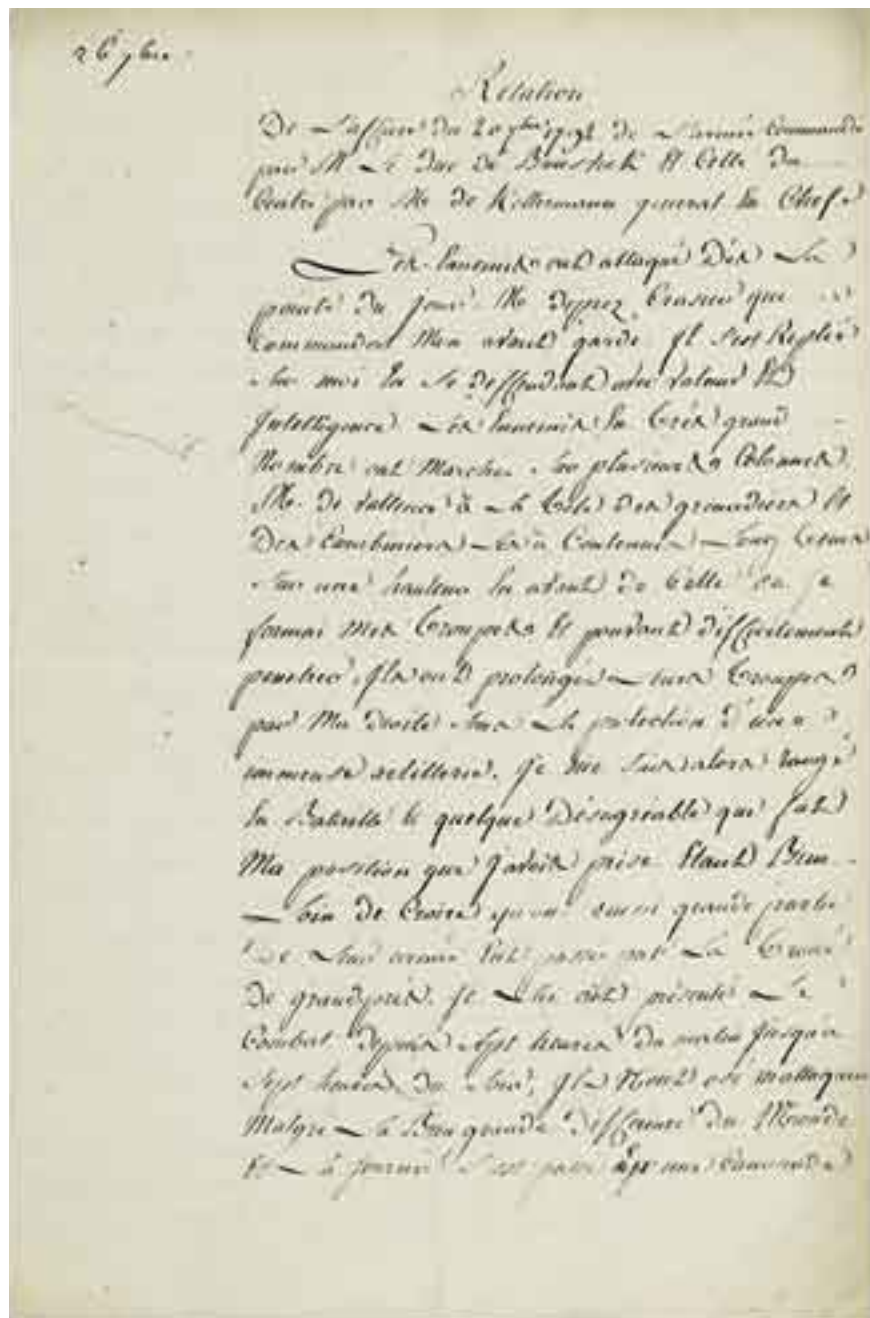 26 7bre
Relation
De L'affaire du 20 7bre 1792 de L'armée Commandée
par M Le Duc de Brunsvick Et Celle du
Centre par Mr de Kellermann general En Chef
Les Ennemis ont attaqué Dès La
pointe du jour Mr Deprez Crassier qui
Commandoit Mon avant garde Il S'est Replié
Sur moi En Se Deffendant avec Valeur Et
Intelligence Les Ennemis En Très grand
Nombre ont Marché Sur plusieurs Colonnes
Mr. de Vallence à La Tête Des grenadiers Et
Des Carabiniers Les a Contenus Long Tems
Sur une hauteur En avant de Celle ou je
formai Mes Trouppes Et pouvant difficilement
penetrer, Ils ont prolongés Leurs Trouppes
par Ma droite Sous La protection d'une
immense artillerie. Je me Suis alors rangé
En Bataille Et quelque Désagréable que fut
Ma position que J'avois prise Etant Bien
Loin de Croire qu'une aussi grande partie
De Leur armée Eut passé par La Trouée
De grandprés. Je Leur ai présenté Le
Combat depuis Sept heures du matin Jusqu'a
Sept heures du Soir, Ils N'ont osé m'attaquer
Malgré La Bien grande Difference du Nombre
Et La journée S'est passée à une Cannonade